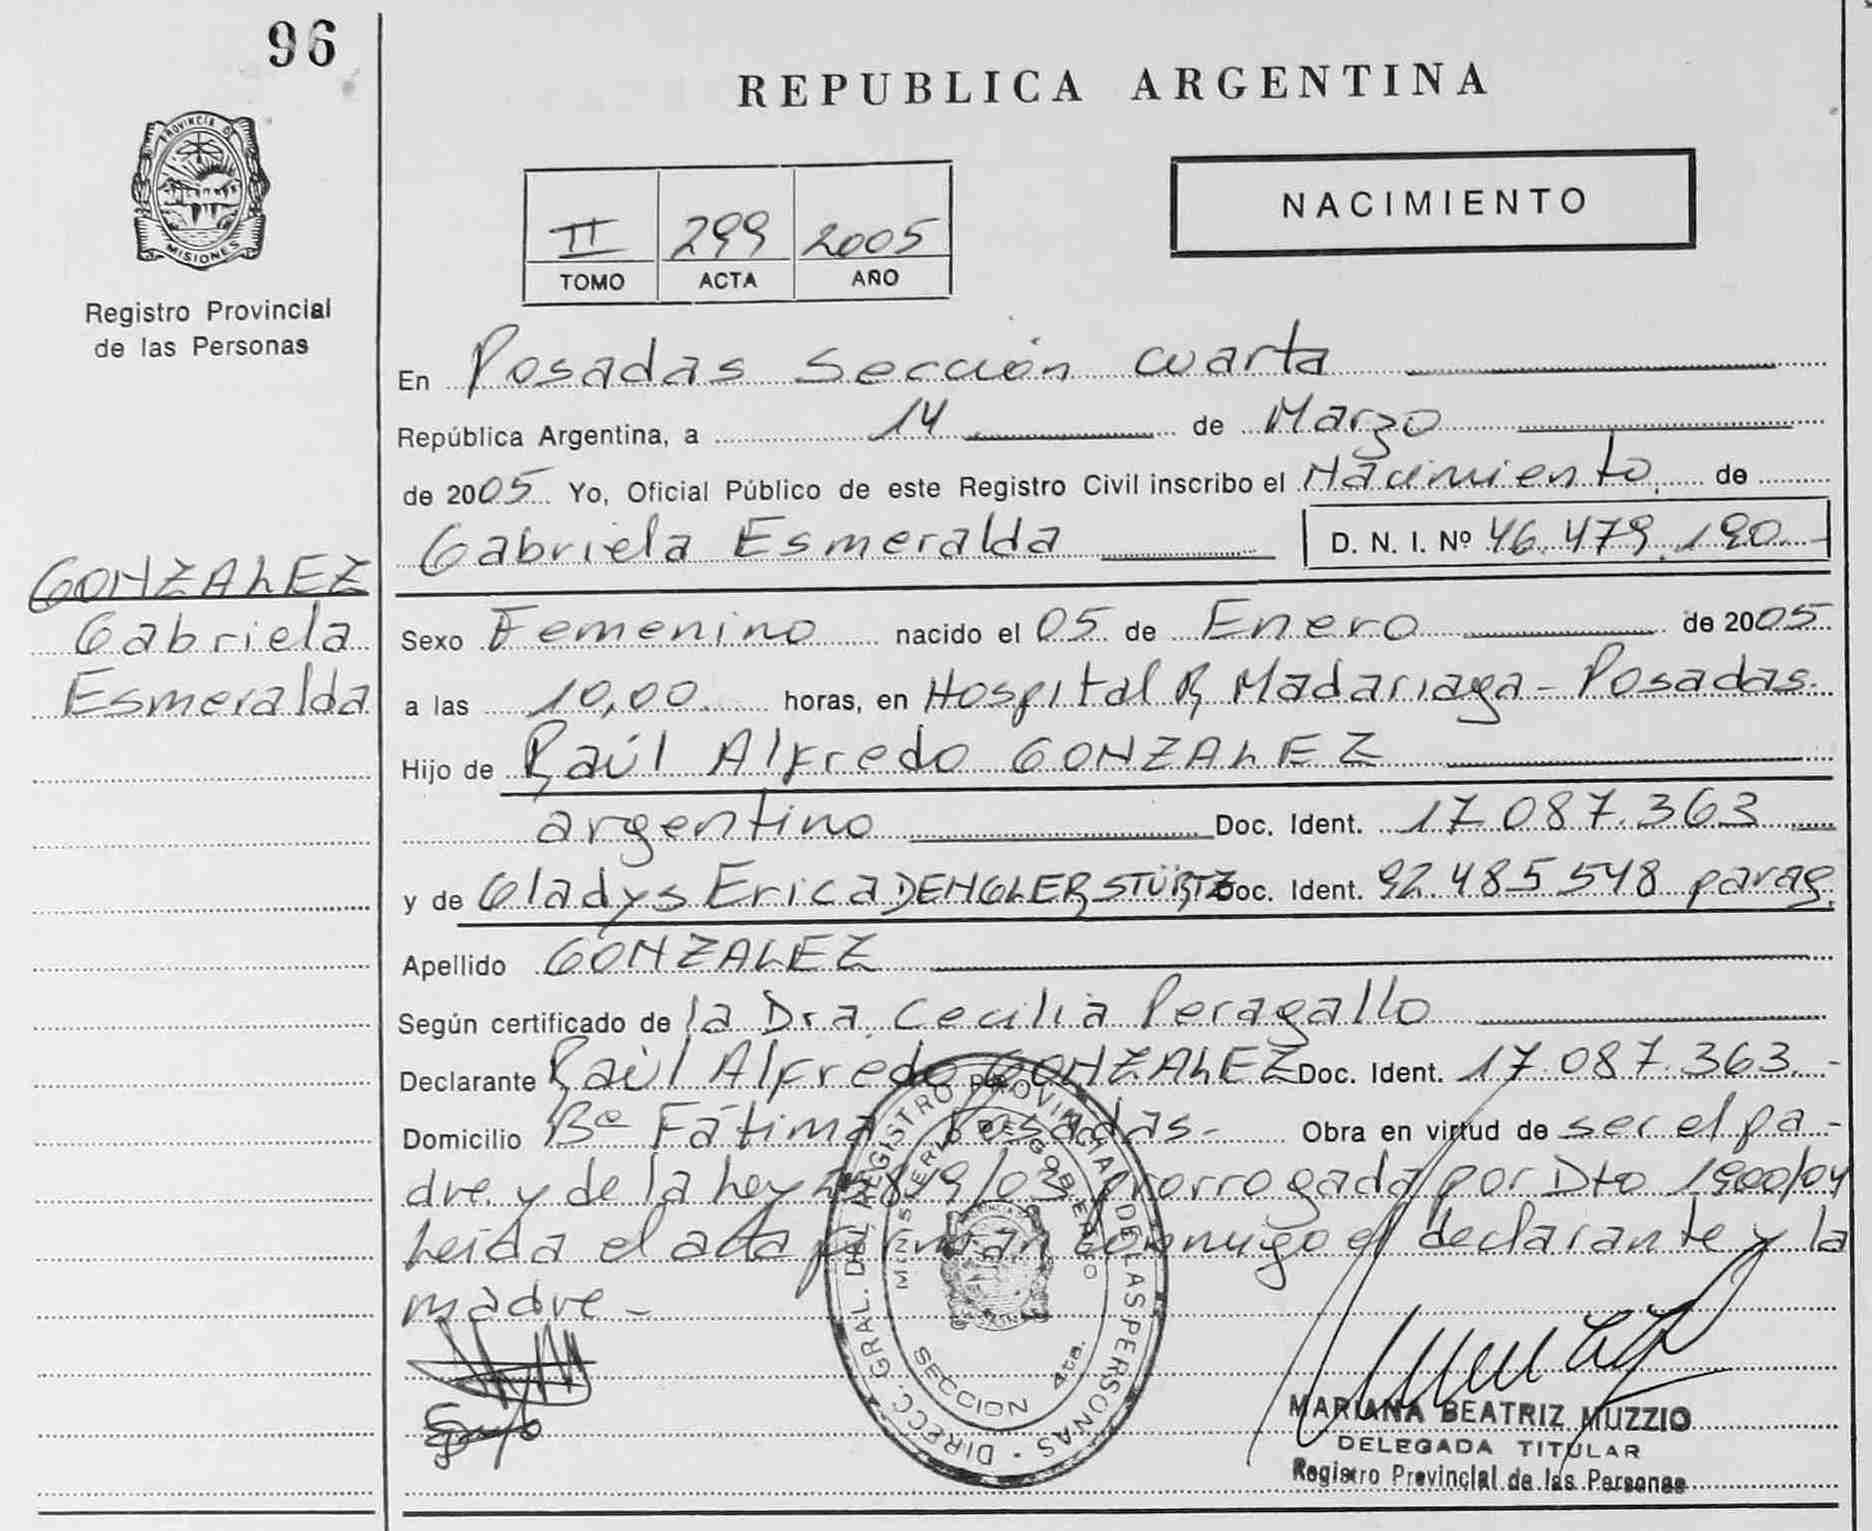 96
PROVINCIA DE
MISIONES
Registro Provincial
de las Personas
REPUBLICA ARGENTINA
II 299 2005
TOMO ACTA AÑO
NACIMIENTO
En Posadas Sección cuarta
República Argentina, a 14 de Marzo
de 2005 Yo, Oficial Público de este Registro Civil inscribo el Nacimiento de
Gabriela Esmeralda D. N. I. Nº 46.479.190
GONZALEZ
Gabriela
Esmeralda
Sexo Femenino nacido el 05 de Enero de 2005
a las 10,00 horas, en Hospital R, Madariaga - Posadas.
Hijo de Raúl Alfredo GONZALEZ
argentino Doc. Ident. 17.087.363
y de Gladys Erica DENGLER STÜRTZ Doc. Ident. 92.485.548 parag.
Apellido GONZALEZ
Según certificado de la Dra. Cecilia Peragallo
Declarante Raúl Alfredo GONZALEZ Doc. Ident. 17.087.363.-
Domicilio Bº Fátima Posadas.- Obra en virtud de ser el pa-
dre y de la Ley 25819/03 prorrogada por Dto 1900/04
Leída el acta firman conmigo el declarante y la
madre.-
DIRECC. GRAL. DEL REGISTRO PROVINCIAL DE LAS PERSONAS
MINISTERIO DE GOBIERNO
SECCION 4ta.
MARIANA BEATRIZ MUZZIO
DELEGADA TITULAR
Registro Provincial de las Personas